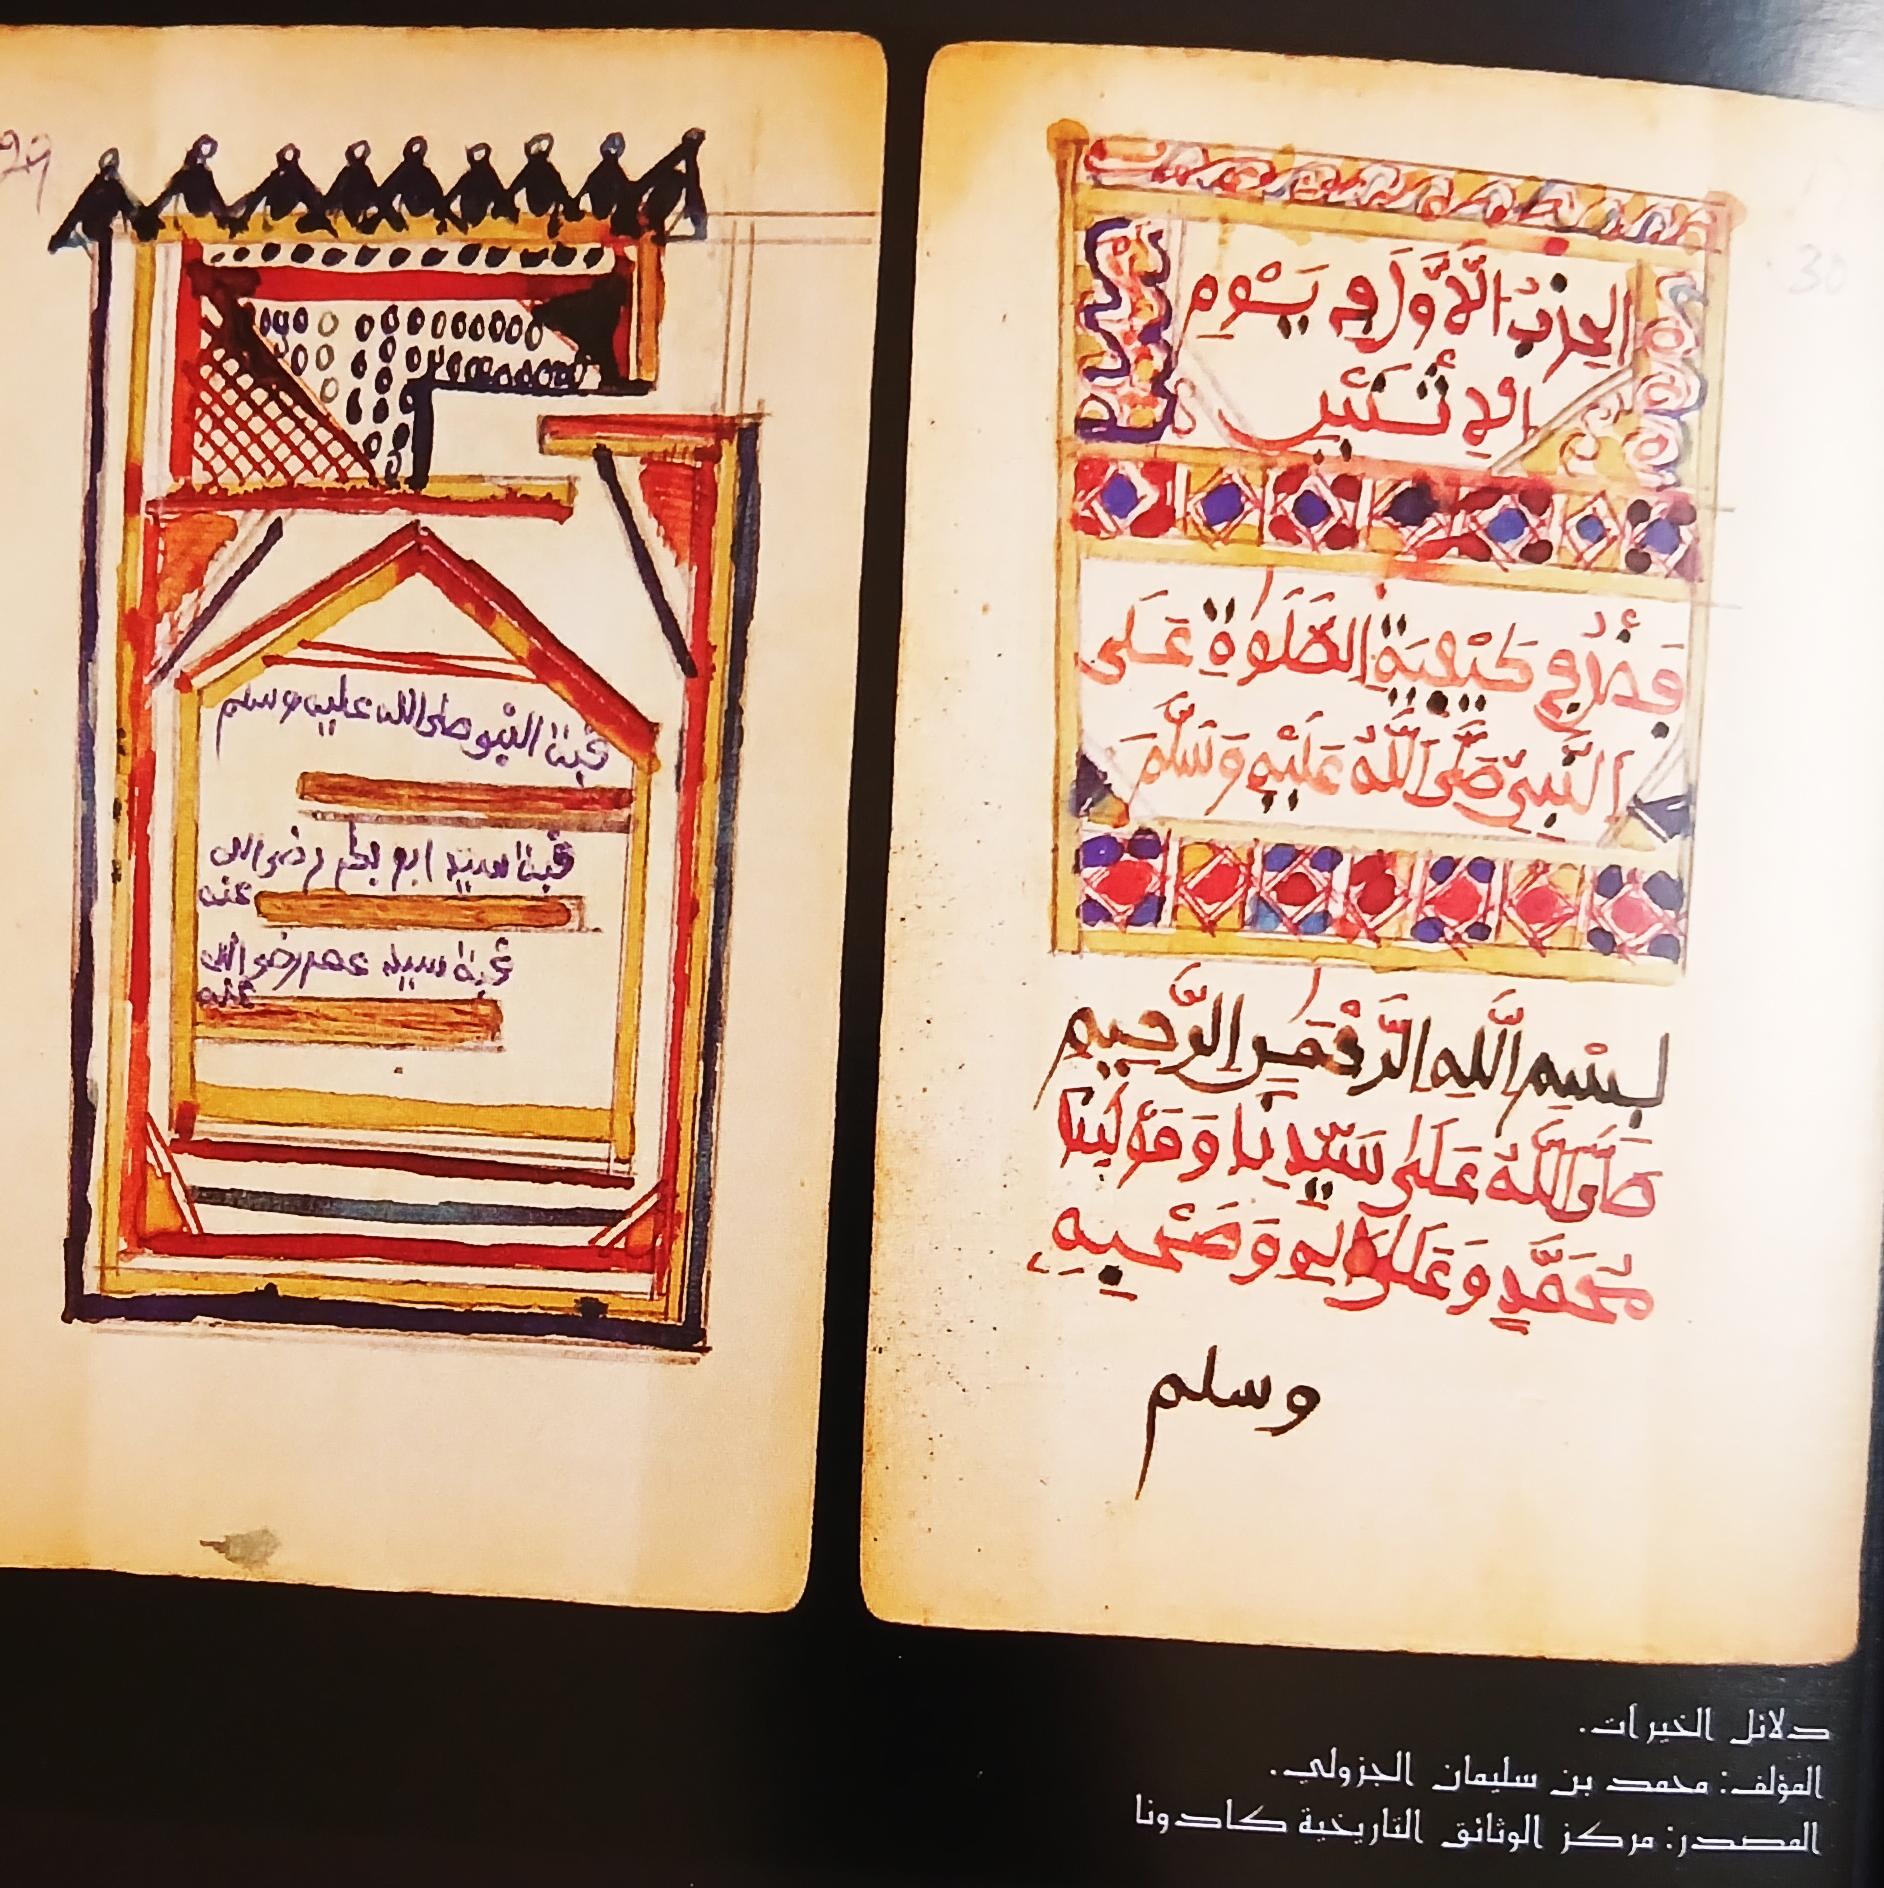 الحِزْبُ الاَّوَّلُ فِي يَوْمِ
الِاثْنَيْنِ
فَصْلٌ فِي كَيْفِيَةِ الصَّلَوٰةِ عَلَى
النَّبِيِّ صَلَّى اللَّهُ عَلَيْهِ وَسَلَّمَ
بِسْمِ اللَّهِ الرَّحْمَٰنِ الرَّحِيمِ
صَلَّى اللَّهُ عَلَى سَيِّدِنَا وَمَوْلَىٰنَا
مُحَمَّدٍ وَعَلَىٰ ءَالِهِ وَصَحْبِهِ
وسلم
30
29
قبة النبي صلى الله عليه وسلم
قبة سيدنا ابو بكر رضي الله
عنه
قبة سيدنا عمر رضي الله
عنه
دلائل الخيرات.
المؤلف: محمد بن سليمان الجزولي.
المصدر: مركز الوثائق التاريخية كادونا